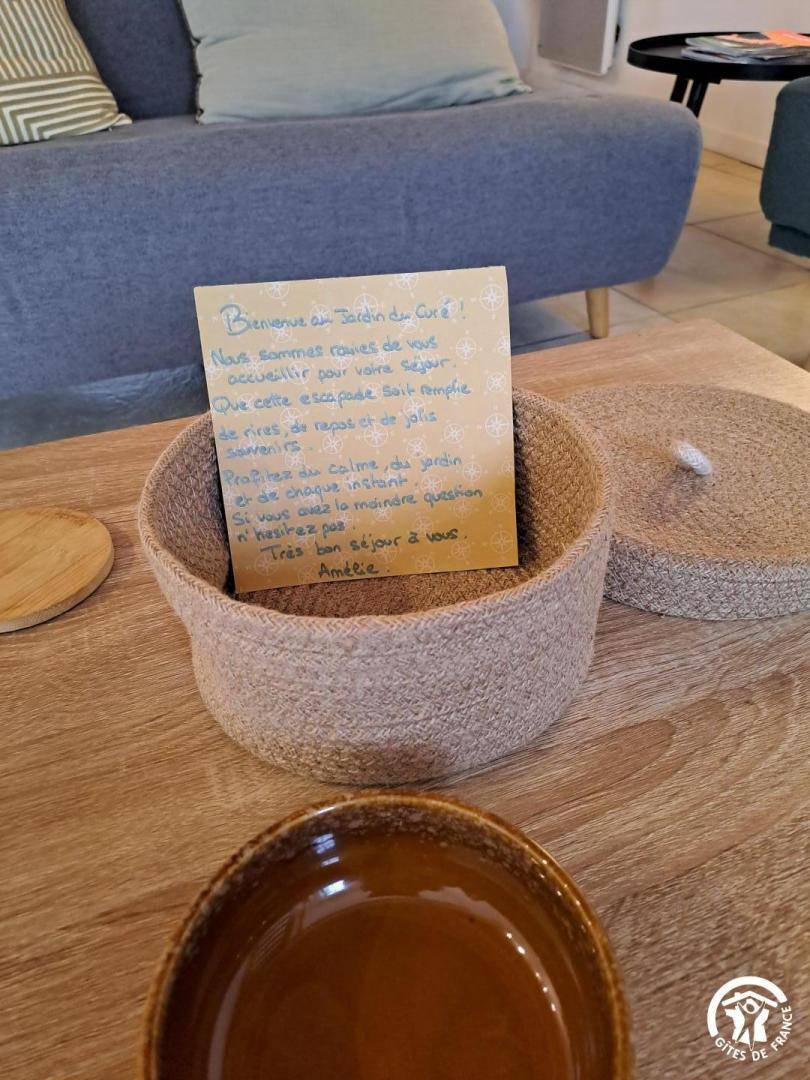 Bienvenue au Jardin du Curé !
Nous sommes ravies de vous
accueillir pour votre séjour.
Que cette escapade soit remplie
de rires, de repos et de jolis
souvenirs.
Profitez du calme, du jardin
et de chaque instant.
Si vous avez la moindre question
n'hesitez pas.
Très bon séjour à vous.
Amélie.
GÎTES DE FRANCE